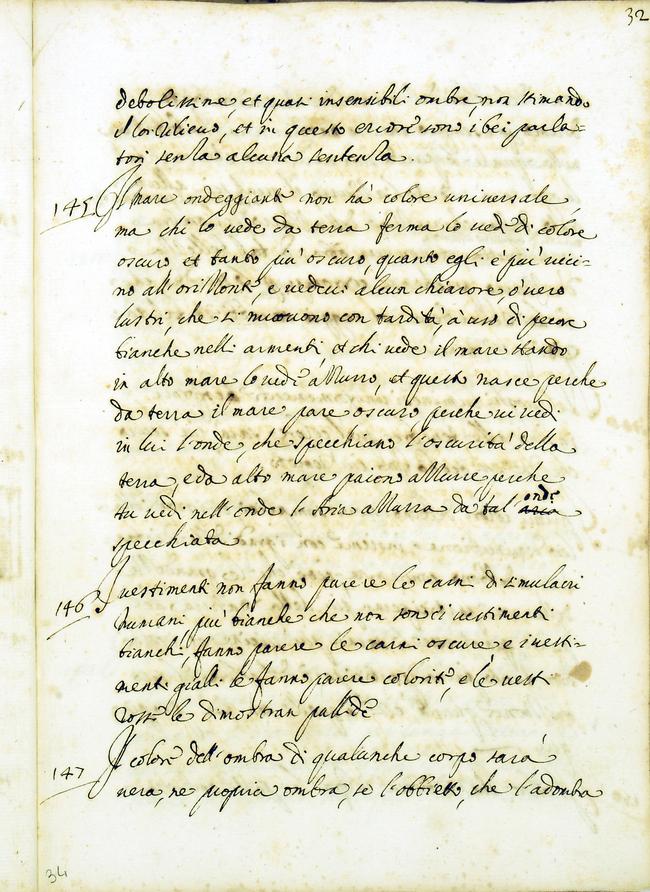 32
debolissime, et quasi insensibili ombre, non stimando
il lor rilievo, et in questo errore sono i bei parla=
tori senza alcuna sentenza.
145 Il mare ondeggiante non hà colore universale,
ma chi lo vede da terra ferma lo vede di colore
oscuro et tanto più oscuro, quanto egli è più vici=
no all'orizzonte, e vedevi alcun chiarore, ò vero
lustri, che si muovono con tardità, à uso di pecore
bianche nelli armenti, et chi vede il mare stando
in alto mare lo vede azzurro, et questo nasce perche
da terra il mare pare oscuro, perche vi vedi
in lui l'onde, che specchiano l'oscurità della
terra, e da alto mare paiono azzurre perche
tu vedi nell'onde l'Aria azzurra da tal' onde
specchiata
146 I vestimenti non fanno parere le carni di simulacri
humani più bianche che non sono, i vestimenti
bianchi, fanno parere le carni oscure e i vesti=
menti gialli le fanno parere colorite, e le vesti
rosse le dimostran pallide
147 Il colore dell'ombra di qualunche corpo sarà
vera, ne propria ombra, se l'obbietto, che l'adombra
34